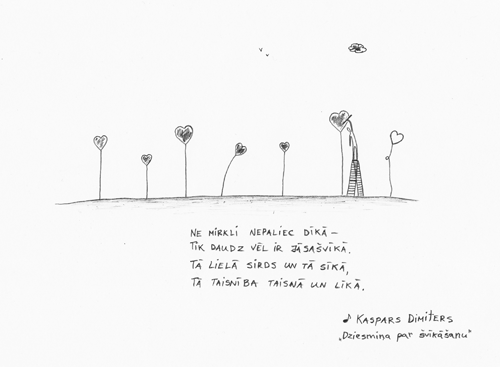 NE MIRKLI NEPALIEC DĪKĀ –
TIK DAUDZ VĒL IR JĀSAŠVĪKĀ.
TĀ LIELĀ SIRDS UN TĀ SĪKĀ,
TĀ TAISNĪBA TAISNĀ UN LĪKĀ.
♪ KASPARS DIMITERS
„Dziesmiņa par švīkāšanu"